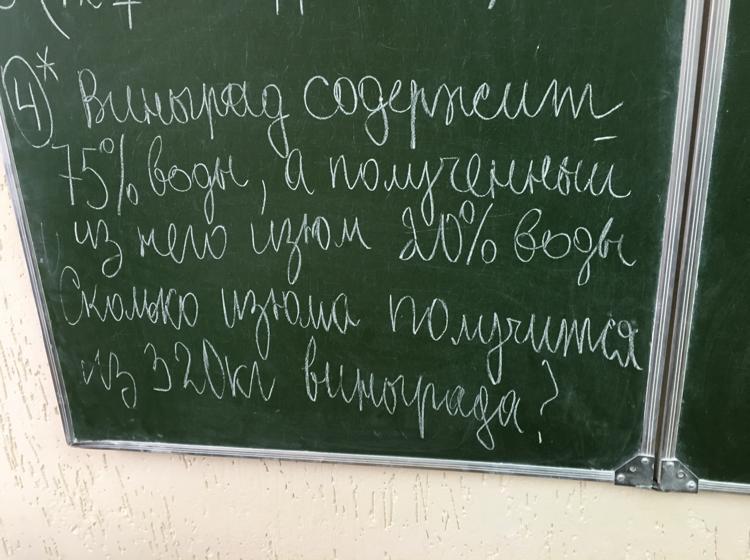 4*
Виноград содержит
75% воды, а полученный
из него изюм 20% воды
Сколько изюма получится
из 320кг винограда?